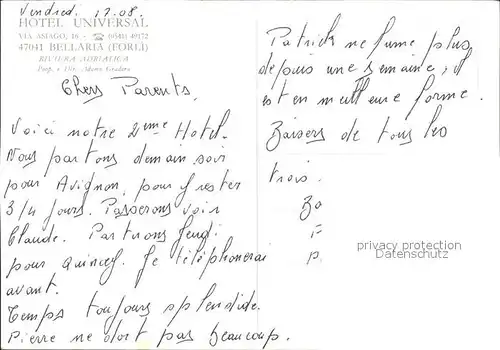 Vendredi. 17.08.
HOTEL UNIVERSAL
VIA ASIAGO, 16 - ☎ (0541) 49172
47041 BELLARIA (FORLÌ)
RIVIERA ADRIATICA
Chers Parents,
Voici notre 2ème Hotel.
Nous partons demain soir
pour Avignon, pour y rester
3/4 jours. Passerons voir
Claude. Partirons Jeudi
pour Quincey. Je téléphonerai
avant.
Temps toujours splendide.
Pierre ne dort pas beaucoup.
Patrick ne fume plus
depuis une semaine, il
est en meilleure forme.
Baisers de tous les
trois.
Ba
P.
privacy protection
Datenschutz